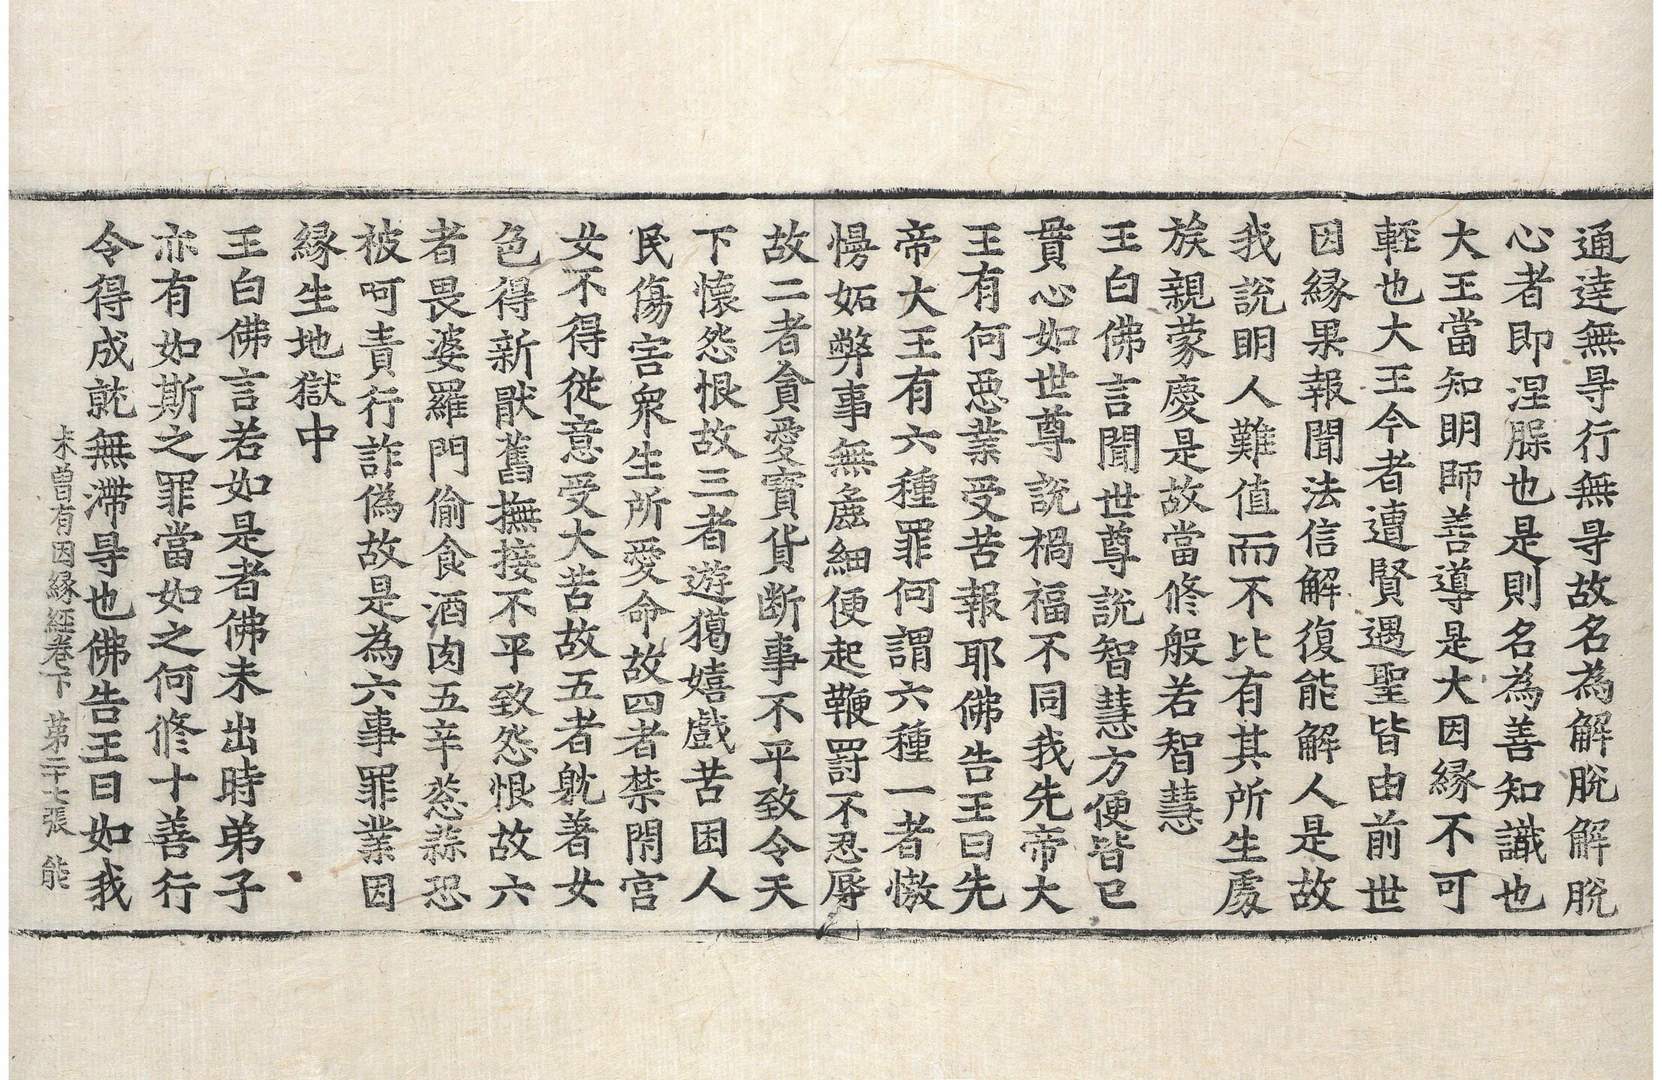 通達無㝵行無㝵故名為解脫解脫
心者即涅槃也是則名為善知識也
大王當知明師善導是大因緣不可
輕也大王今者遭賢遇聖皆由前世
因緣果報聞法信解復能解人是故
我說明人難值而不比有其所生處
族親蒙慶是故當修般若智慧
王白佛言聞世尊說智慧方便皆已
貫心如世尊說禍福不同我先帝大
王有何惡業受苦報耶佛告王曰先
帝大王有六種罪何謂六種一者憿
慢妬弊事無麁細便起鞭罰不忍辱
故二者貪愛寶貨断事不平致令天
下懷怨恨故三者遊獦嬉戲苦困人
民傷害衆生所愛命故四者禁閇宮
女不得從意受大苦故五者躭著女
色得新猒舊撫接不平致怨恨故六
者畏婆羅門偷食酒肉五辛葱蒜恐
被呵責行詐偽故是為六事罪業因
緣生地獄中
王白佛言若如是者佛未出時弟子
亦有如斯之罪當如之何修十善行
令得成就無滯㝵也佛告王曰如我
未曾有因緣經卷下 第二十七張 能